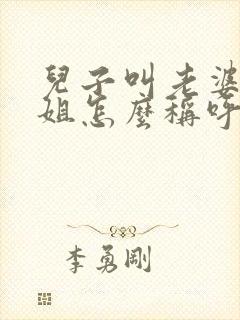 兒子叫老婆
姐怎麼稱呼
李勇剛